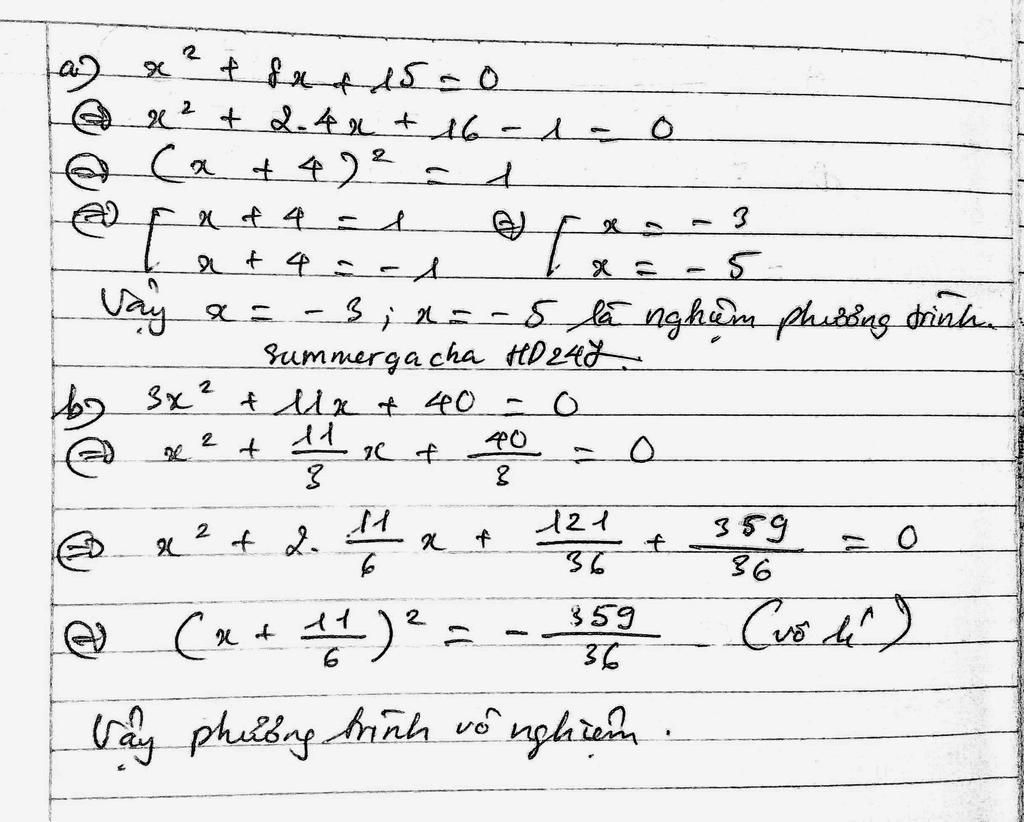 a) x² + 8x + 15 = 0
⇔ x² + 2.4x + 16 - 1 = 0
⇔ (x + 4)² = 1
⇔ [ x + 4 = 1 ⇔ [ x = - 3
x + 4 = - 1 x = - 5
Vậy x = - 3 ; x = - 5 là nghiệm phương trình.
Summergacha HD247.
b) 3x² + 11x + 40 = 0
⇔ x² + 11/3 x + 40/3 = 0
⇔ x² + 2. 11/6 x + 121/36 + 359/36 = 0
⇔ (x + 11/6)² = - 359/36 (vô lí)
Vậy phương trình vô nghiệm.